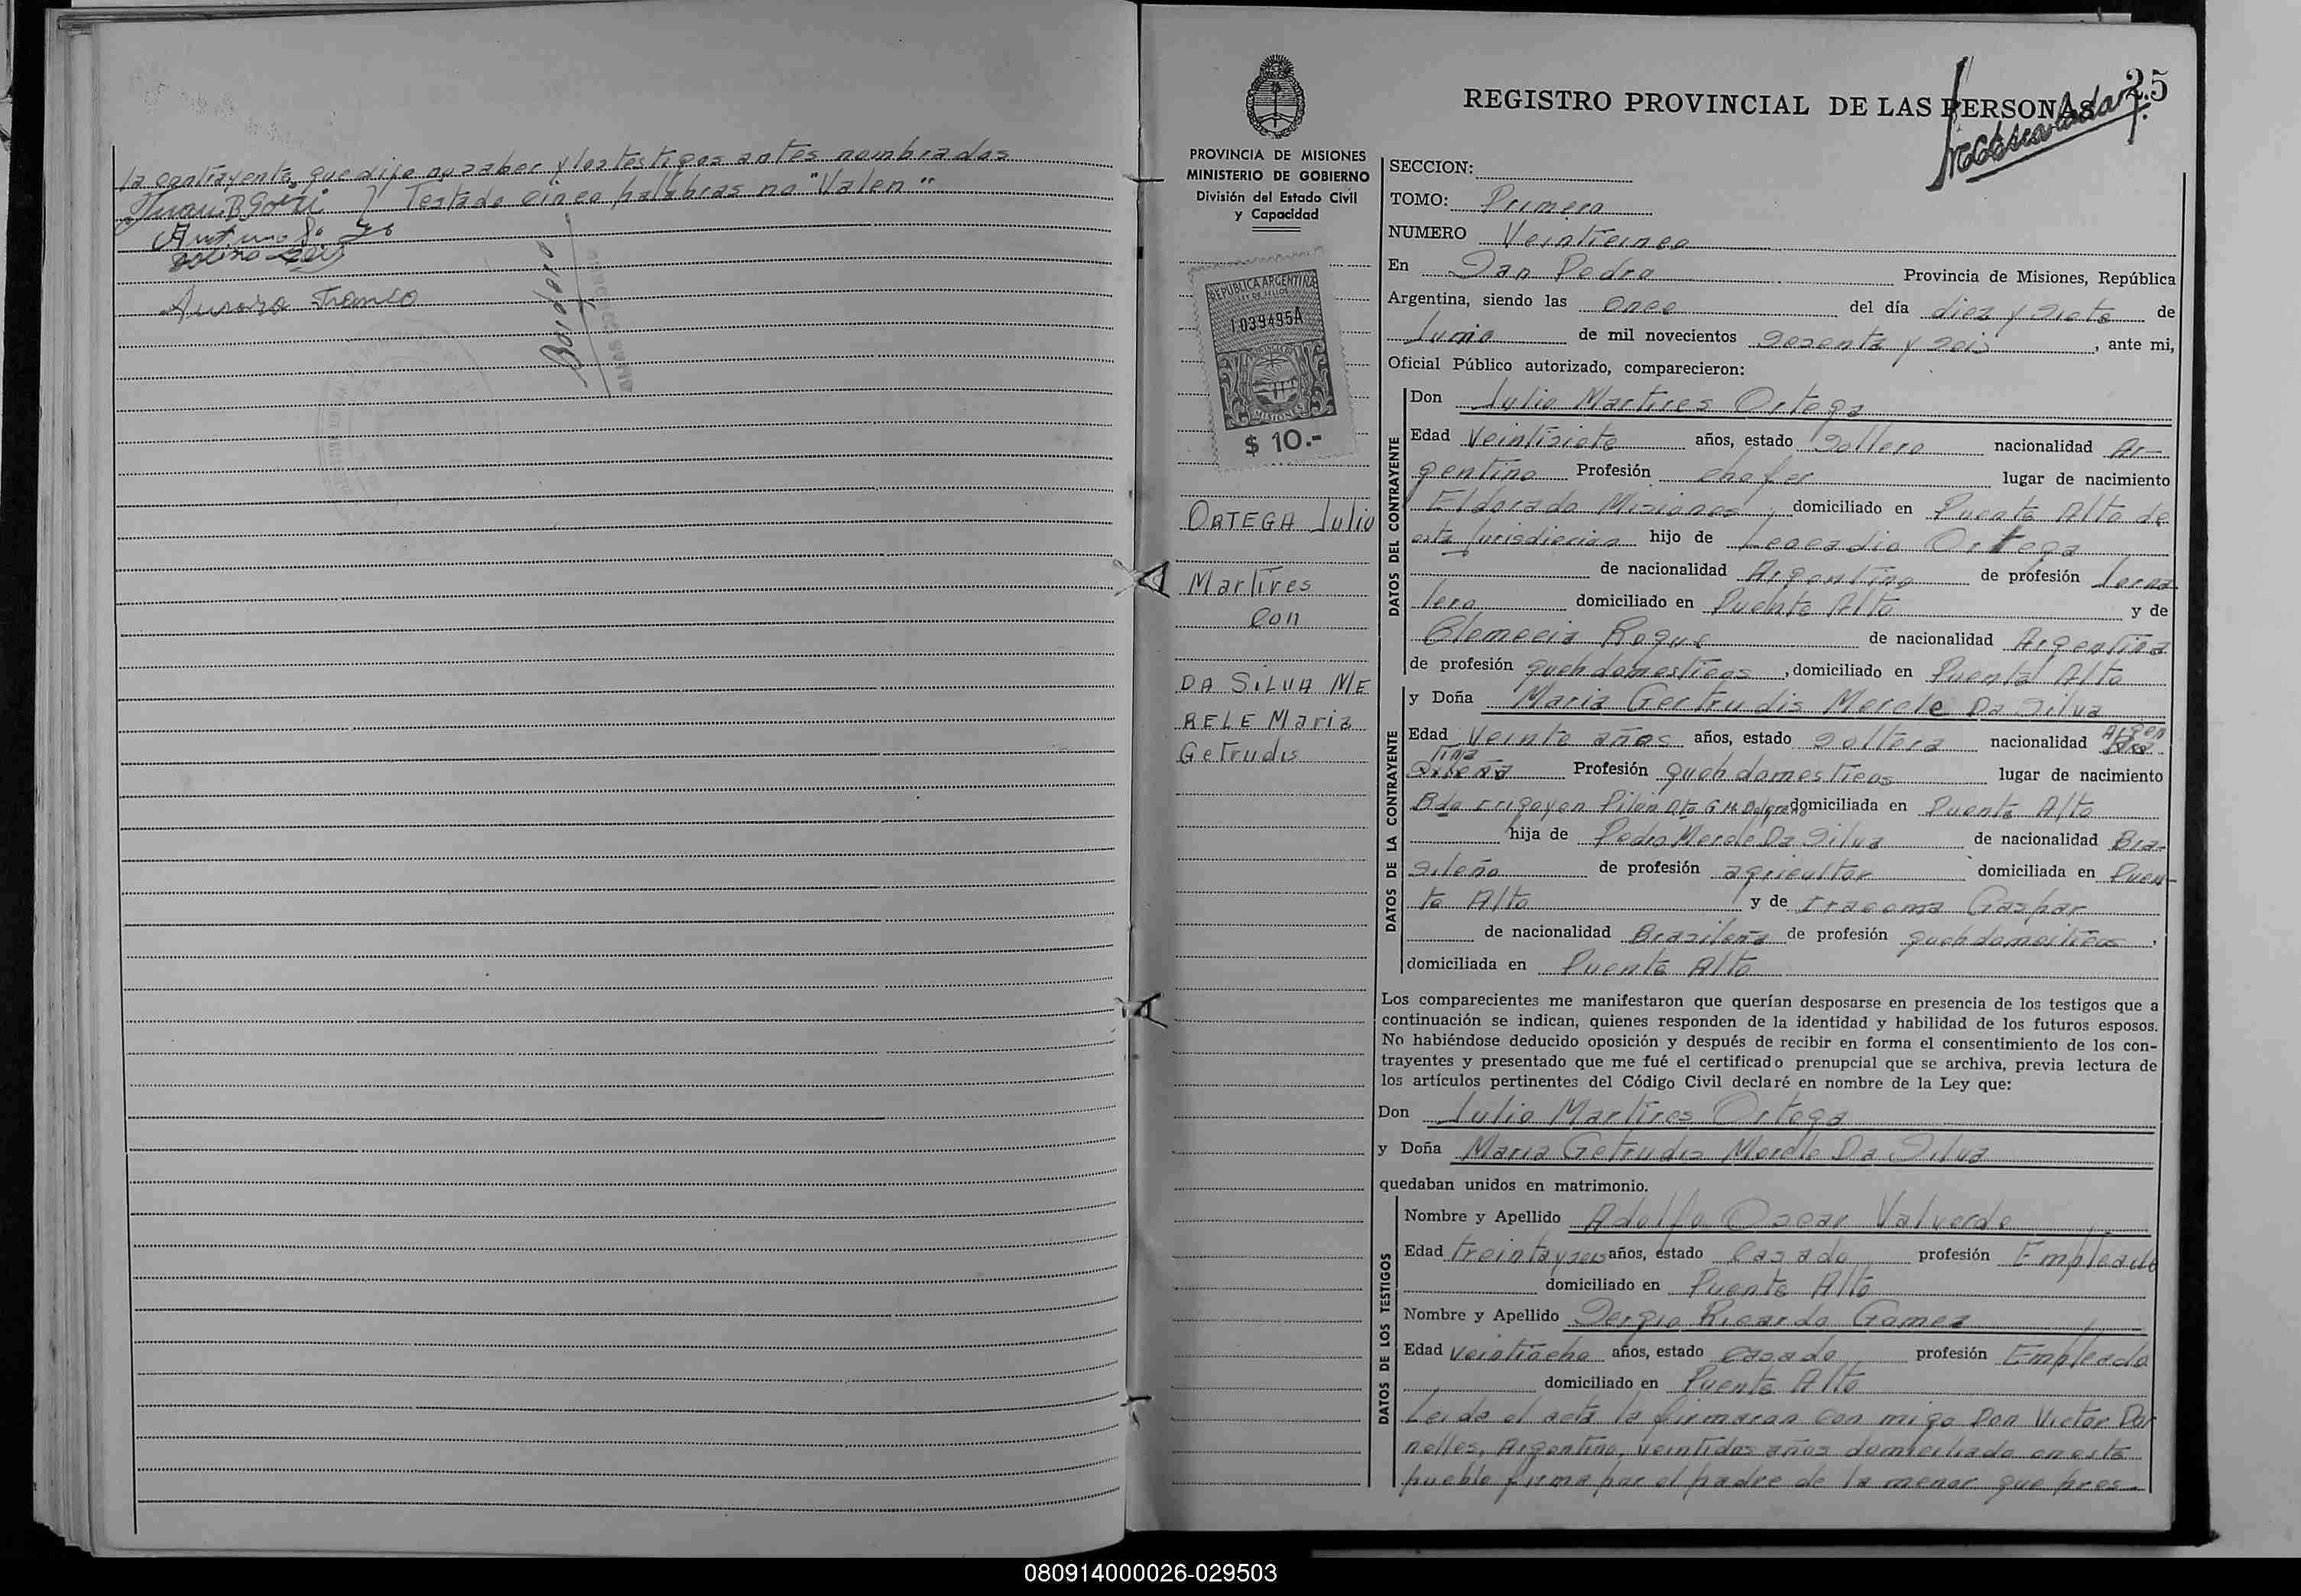 la contrayente, que dijo no saber y los testigos antes nombrados
Testado cinco palabras no "Valen"
Aurora Franco
25
REGISTRO PROVINCIAL DE LAS PERSONAS
PROVINCIA DE MISIONES
MINISTERIO DE GOBIERNO
División del Estado Civil
y Capacidad
REPUBLICA ARGENTINA
LEY DE SELLOS
1039495A
MISIONES
$ 10.-
ORTEGA Julio
Martires
con
DA SILVA ME
RELE Maria
Getrudis
SECCION:
TOMO: Primero
NUMERO Veinticinco
En San Pedro Provincia de Misiones, República
Argentina, siendo las once del día diez y siete de
Junio de mil novecientos sesenta y seis, ante mi,
Oficial Público autorizado, comparecieron:
DATOS DEL CONTRAYENTE
Don Julio Martires Ortega
Edad Veintisiete años, estado soltero nacionalidad Ar-
gentino Profesión chofer lugar de nacimiento
Eldorado Misiones, domiciliado en Puente Alto de
esta Jurisdiccion hijo de Leocadio Ortega
de nacionalidad Argentino de profesión Jorna
lero domiciliado en Puente Alto y de
Clemecia Roque de nacionalidad Argentina
de profesión queh domesticos, domiciliado en Puente Alto
DATOS DE LA CONTRAYENTE
y Doña Maria Gertrudis Merele Da Silva
Edad Veinte años años, estado soltera nacionalidad Argen
tina Profesión queh domesticos lugar de nacimiento
Bdo Irigoyen Pilon Dto G M Belgrano domiciliada en Puente Alto
hija de Pedro Merele Da Silva de nacionalidad Bra-
sileño de profesión agricultor domiciliada en Puen-
te Alto y de Iracema Gaspar
de nacionalidad Brasileña de profesión queh domesticos,
domiciliada en Puente Alto
Los comparecientes me manifestaron que querían desposarse en presencia de los testigos que a
continuación se indican, quienes responden de la identidad y habilidad de los futuros esposos.
No habiéndose deducido oposición y después de recibir en forma el consentimiento de los con-
trayentes y presentado que me fué el certificado prenupcial que se archiva, previa lectura de
los artículos pertinentes del Código Civil declaré en nombre de la Ley que:
Don Julio Martires Ortega
y Doña Maria Getrudis Merele Da Silva
quedaban unidos en matrimonio.
DATOS DE LOS TESTIGOS
Nombre y Apellido Adolfo Oscar Valverde
Edad treinta y seis años, estado Casado profesión Empleado
domiciliado en Puente Alto
Nombre y Apellido Sergio Ricardo Gomez
Edad veintiocho años, estado casado profesión Empleado
domiciliado en Puente Alto
Leida el acta la firmaron con migo Don Victor Dor
nelles, Argentino, veintidos años domiciliado en este
pueblo firma por el padre de la menor que pres-
080914000026-029503